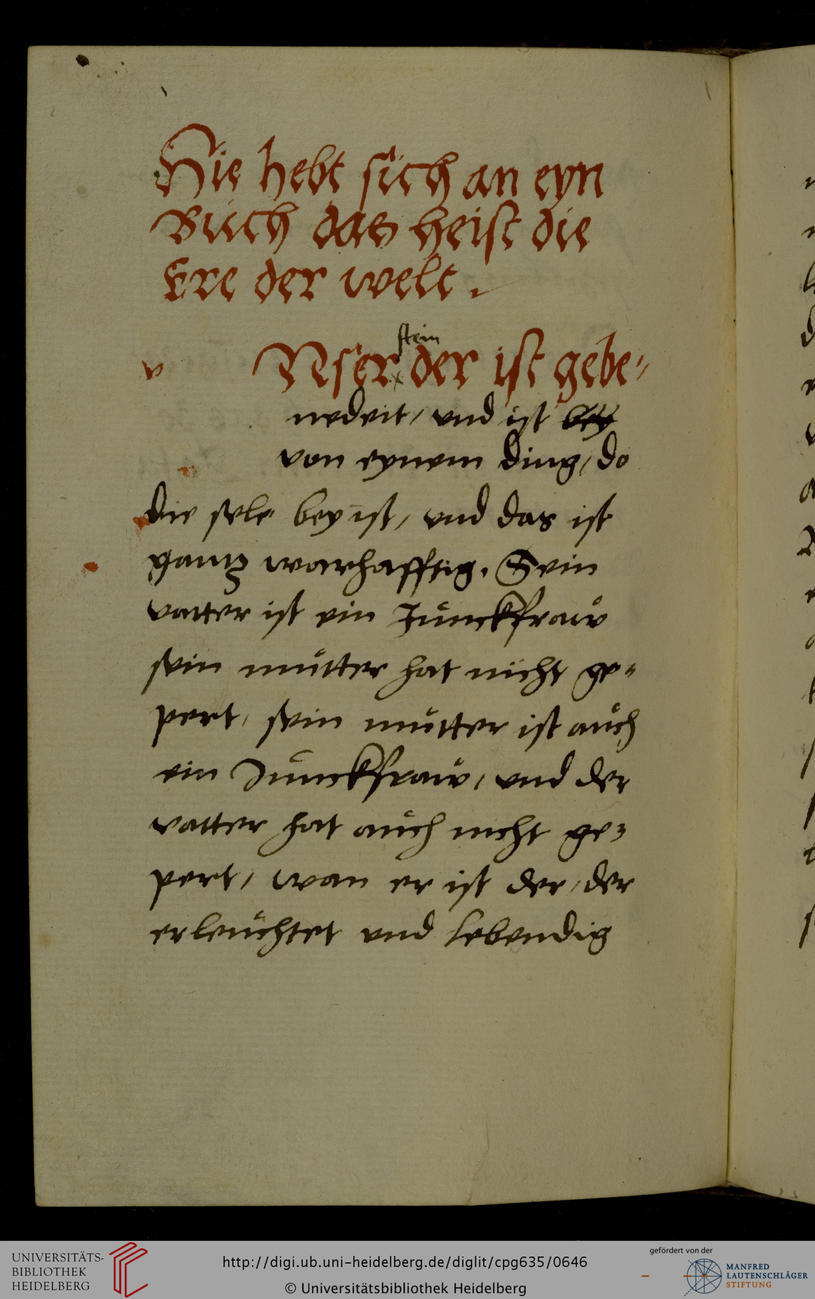 Hie hebt sich an eyn
Buch das heist die
Ere der welt.
stein
v Nser der ist gebe-
nedeit, und ist bey
von eynem ding, do
die sele bey ist, und das ist
gantz warhafftig. Sein
vatter ist ein Junckfraw
sein mutter hat nicht ge-
pert, sein mutter ist auch
ein Junckfraw, und der
vatter hat auch nicht ge-
pert, wan er ist der, der
erleuchtet und lebendig
UNIVERSITÄTS-
BIBLIOTHEK
HEIDELBERG
http://digi.ub.uni-heidelberg.de/diglit/cpg635/0646
© Universitätsbibliothek Heidelberg
gefördert von der
MANFRED
LAUTENSCHLÄGER
STIFTUNG